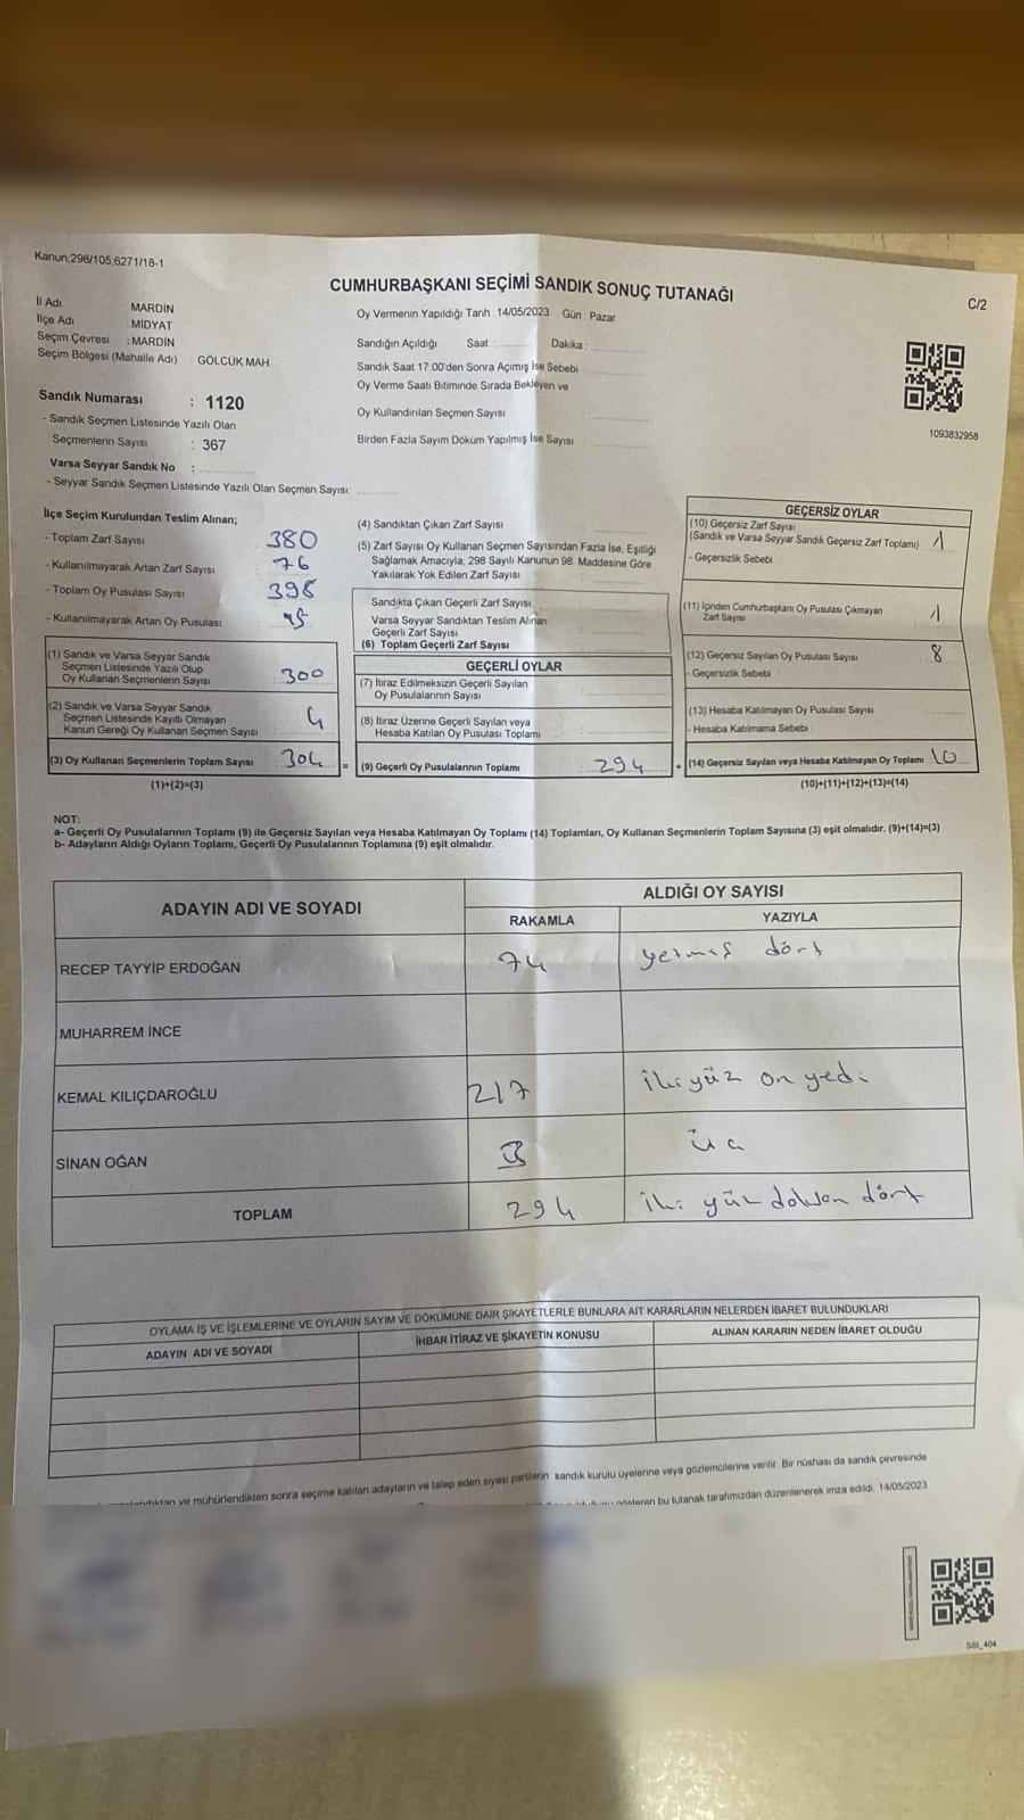 Kanun:298/105,6271/18-1
CUMHURBAŞKANI SEÇİMİ SANDIK SONUÇ TUTANAĞI
C/2
İl Adı MARDİN
İlçe Adı MİDYAT
Seçim Çevresi :MARDİN
Seçim Bölgesi (Mahalle Adı) GÖLCÜK MAH
Oy Vermenin Yapıldığı Tarih 14/05/2023 Gün Pazar
Sandığın Açıldığı Saat Dakika
Sandık Saat 17:00'den Sonra Açımış İse Sebebi
Oy Verme Saati Bitiminde Sırada Bekleyen ve
Oy Kullandırılan Seçmen Sayısı
Birden Fazla Sayım Döküm Yapılmış İse Sayısı
1093832958
Sandık Numarası : 1120
- Sandık Seçmen Listesinde Yazılı Olan
Seçmenlerin Sayısı : 367
Varsa Seyyar Sandık No :
- Seyyar Sandık Seçmen Listesinde Yazılı Olan Seçmen Sayısı:
İlçe Seçim Kurulundan Teslim Alınan;
- Toplam Zarf Sayısı 380
- Kullanılmayarak Artan Zarf Sayısı 76
- Toplam Oy Pusulası Sayısı 398
- Kullanılmayarak Artan Oy Pusulası
(1) Sandık ve Varsa Seyyar Sandık
Seçmen Listesinde Yazılı Olup
Oy Kullanan Seçmenlerin Sayısı 300
(2) Sandık ve Varsa Seyyar Sandık
Seçmen Listesinde Kayıtlı Olmayan
Kanun Gereği Oy Kullanan Seçmen Sayısı 4
(3) Oy Kullanan Seçmenlerin Toplam Sayısı 304 =
(1)+(2)=(3)
(4) Sandıktan Çıkan Zarf Sayısı
(5) Zarf Sayısı Oy Kullanan Seçmen Sayısından Fazla İse, Eşitliği
Sağlamak Amacıyla, 298 Sayılı Kanunun 98. Maddesine Göre
Yakılarak Yok Edilen Zarf Sayısı
Sandıkta Çıkan Geçerli Zarf Sayısı
Varsa Seyyar Sandıktan Teslim Alınan
Geçerli Zarf Sayısı
(6) Toplam Geçerli Zarf Sayısı
GEÇERLİ OYLAR
(7) İtiraz Edilmeksizin Geçerli Sayılan
Oy Pusulalarının Sayısı
(8) İtiraz Üzerine Geçerli Sayılan veya
Hesaba Katılan Oy Pusulası Toplamı
(9) Geçerli Oy Pusulalarının Toplamı 294 +
GEÇERSİZ OYLAR
(10) Geçersiz Zarf Sayısı
(Sandık ve Varsa Seyyar Sandık Geçersiz Zarf Toplamı) 1
- Geçersizlik Sebebi
(11) İçinden Cumhurbaşkanı Oy Pusulası Çıkmayan
Zarf Sayısı 1
(12) Geçersiz Sayılan Oy Pusulası Sayısı 8
- Geçersizlik Sebebi
(13) Hesaba Katılmayan Oy Pusulası Sayısı
- Hesaba Katılmama Sebebi
(14) Geçersiz Sayılan veya Hesaba Katılmayan Oy Toplamı 10
(10)+(11)+(12)+(13)=(14)
NOT:
a- Geçerli Oy Pusulalarının Toplamı (9) ile Geçersiz Sayılan veya Hesaba Katılmayan Oy Toplamı (14) Toplamları, Oy Kullanan Seçmenlerin Toplam Sayısına (3) eşit olmalıdır. (9)+(14)=(3)
b- Adayların Aldığı Oyların Toplamı, Geçerli Oy Pusulalarının Toplamına (9) eşit olmalıdır.
ADAYIN ADI VE SOYADI
ALDIĞI OY SAYISI
RAKAMLA YAZIYLA
RECEP TAYYİP ERDOĞAN 74 yetmiş dört
MUHARREM İNCE
KEMAL KILIÇDAROĞLU 217 iki yüz on yedi
SİNAN OĞAN 3 üç
TOPLAM 294 iki yüz doksan dört
OYLAMA İŞ VE İŞLEMLERİNE VE OYLARIN SAYIM VE DÖKÜMÜNE DAİR ŞİKAYETLERLE BUNLARA AİT KARARLARIN NELERDEN İBARET BULUNDUKLARI
ADAYIN ADI VE SOYADI İHBAR İTİRAZ VE ŞİKAYETİN KONUSU ALINAN KARARIN NEDEN İBARET OLDUĞU
ve mühürlendikten sonra seçime katılan adayların ve talep eden siyasi partilerin sandık kurulu üyelerine veya gözlemcilerine verilir. Bir nüshası da sandık çevresinde
bu tutanak tarafımızdan düzenlenerek imza edildi. 14/05/2023